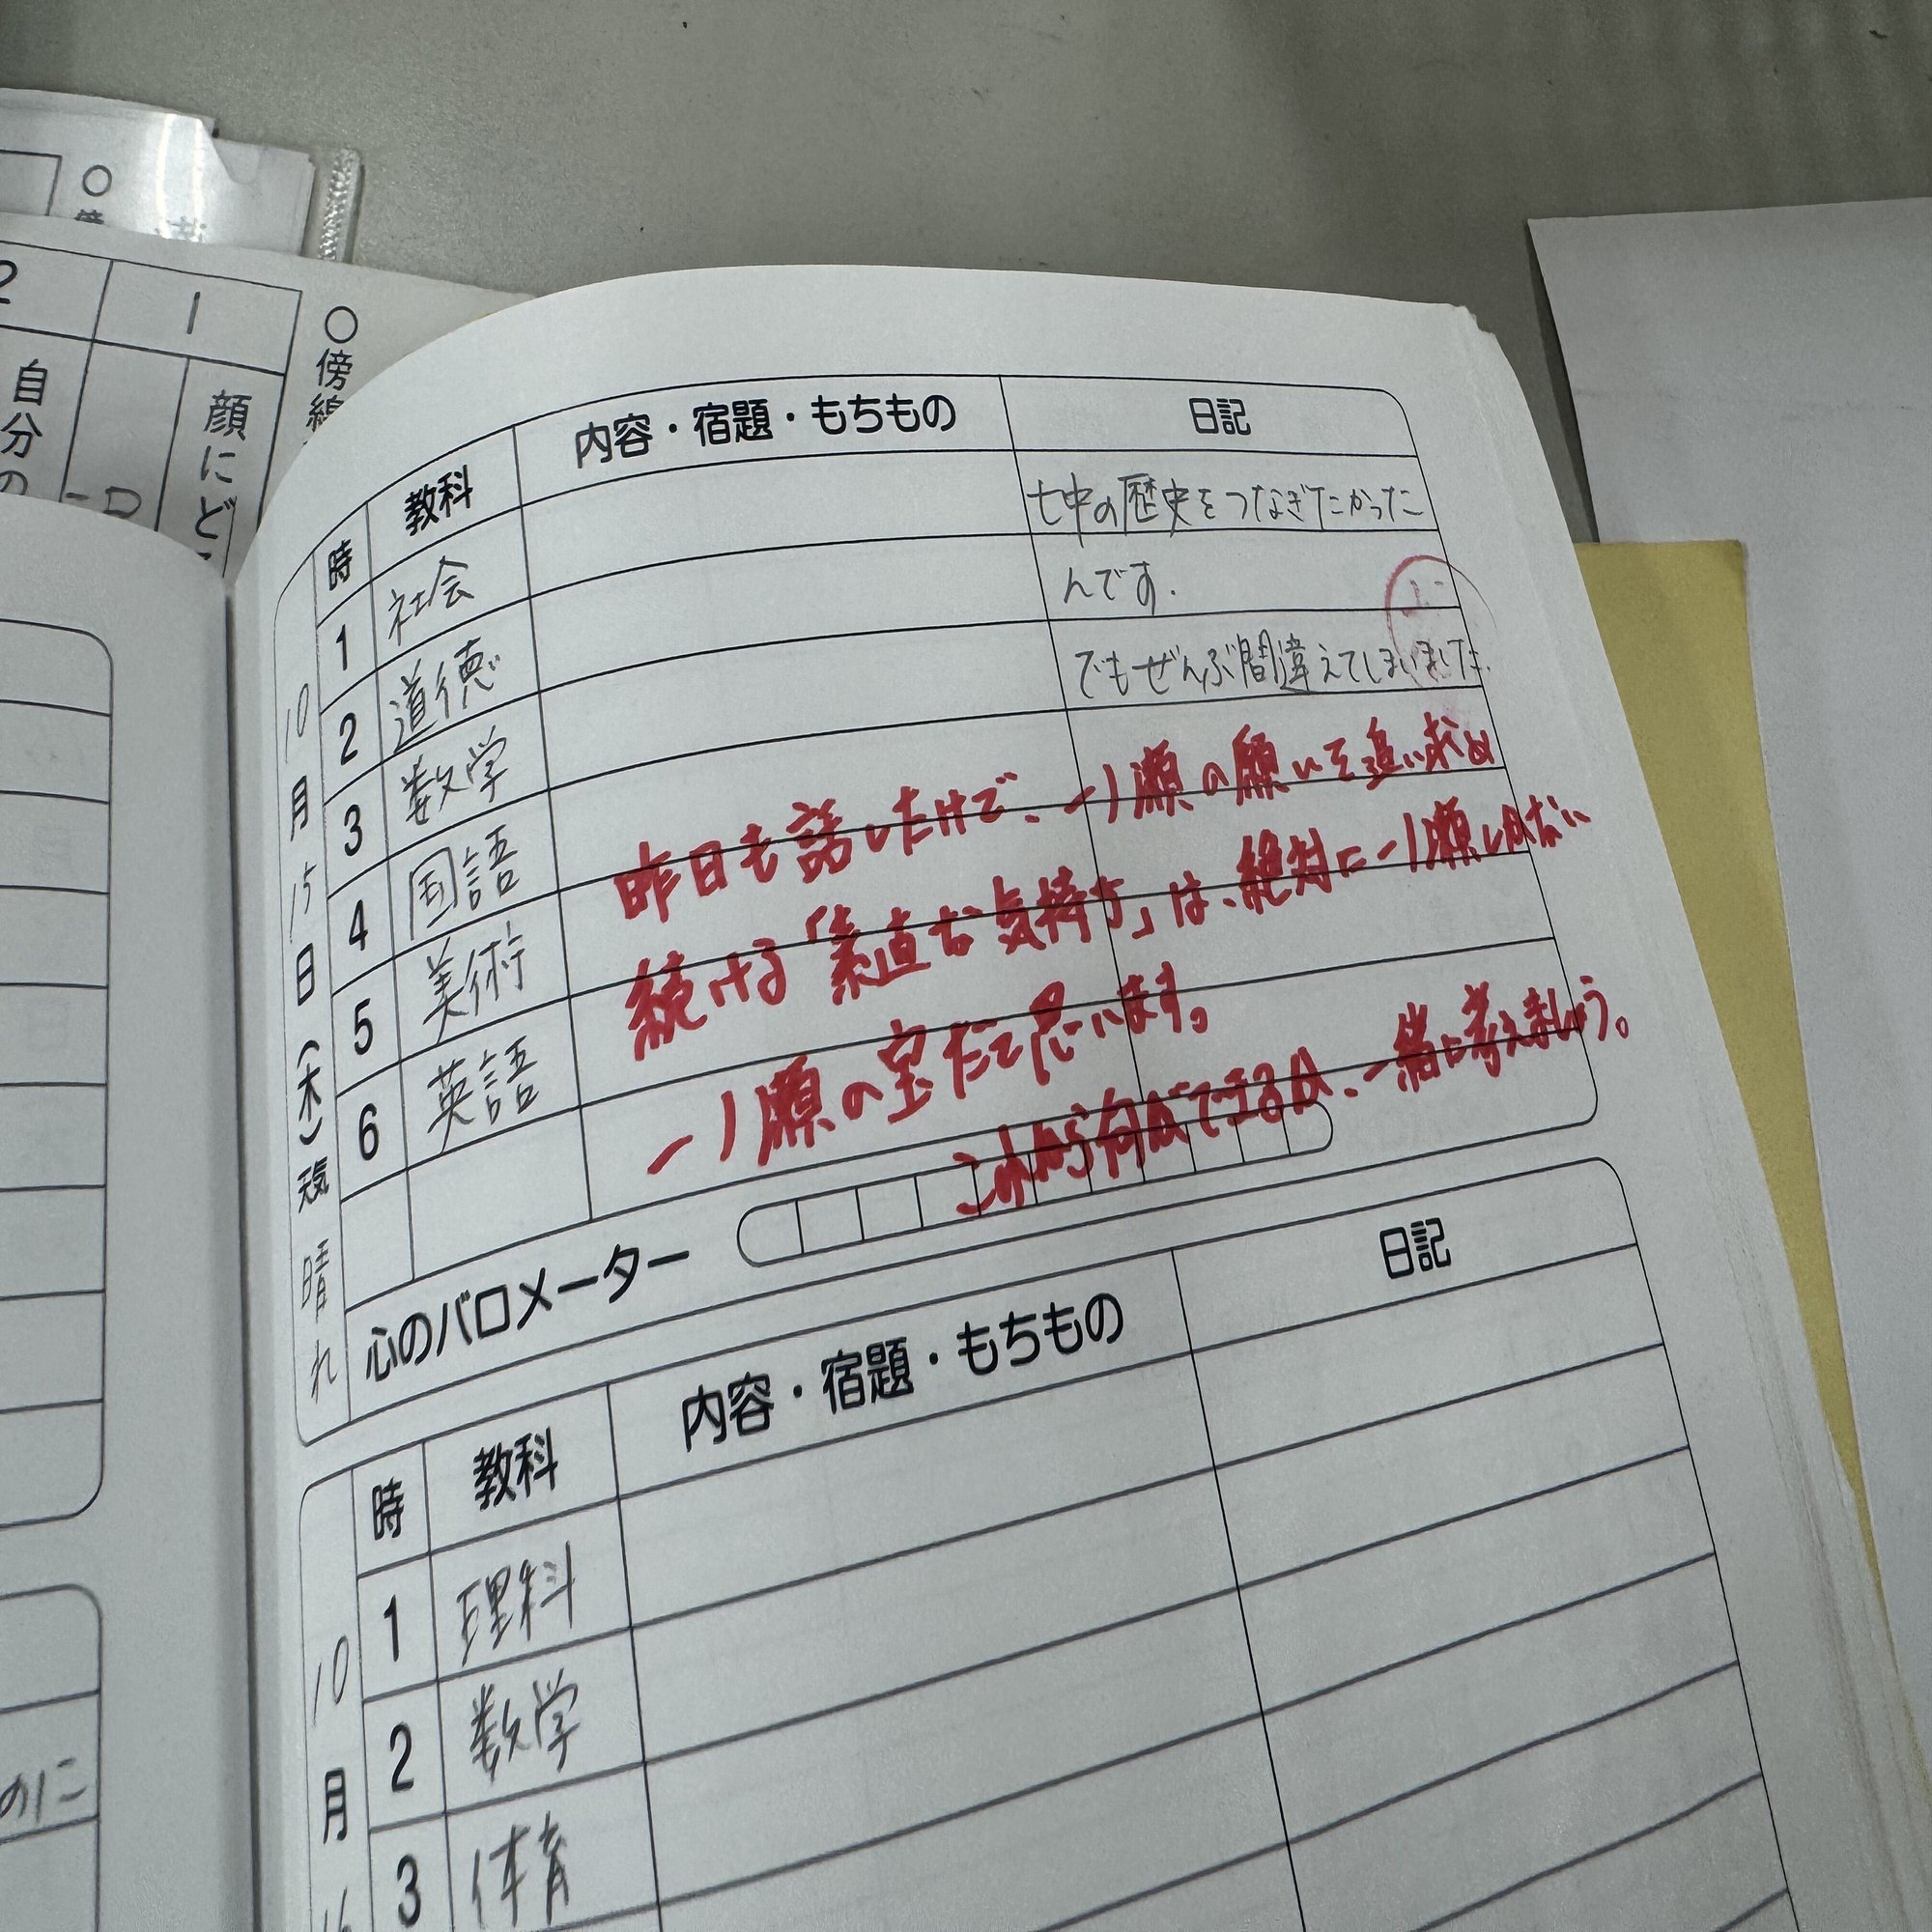 2
1
自分の
顔にど
○傍線
時
教科
内容・宿題・もちもの
日記
10月15日(木)天気 晴れ
1 社会
2 道徳
3 数学
4 国語
5 美術
6 英語
七中の歴史をつなぎたかった
んです.
でもぜんぶ間違えてしまいました.
昨日も話したけど、一ノ瀬の願いを追い求め
続ける「素直な気持ち」は、絶対に一ノ瀬しかない
一ノ瀬の宝だと思います。
これから何ができるか、一緒に考えましょう。
心のバロメーター
時
教科
内容・宿題・もちもの
日記
10月16
1 理科
2 数学
3 体育
のに